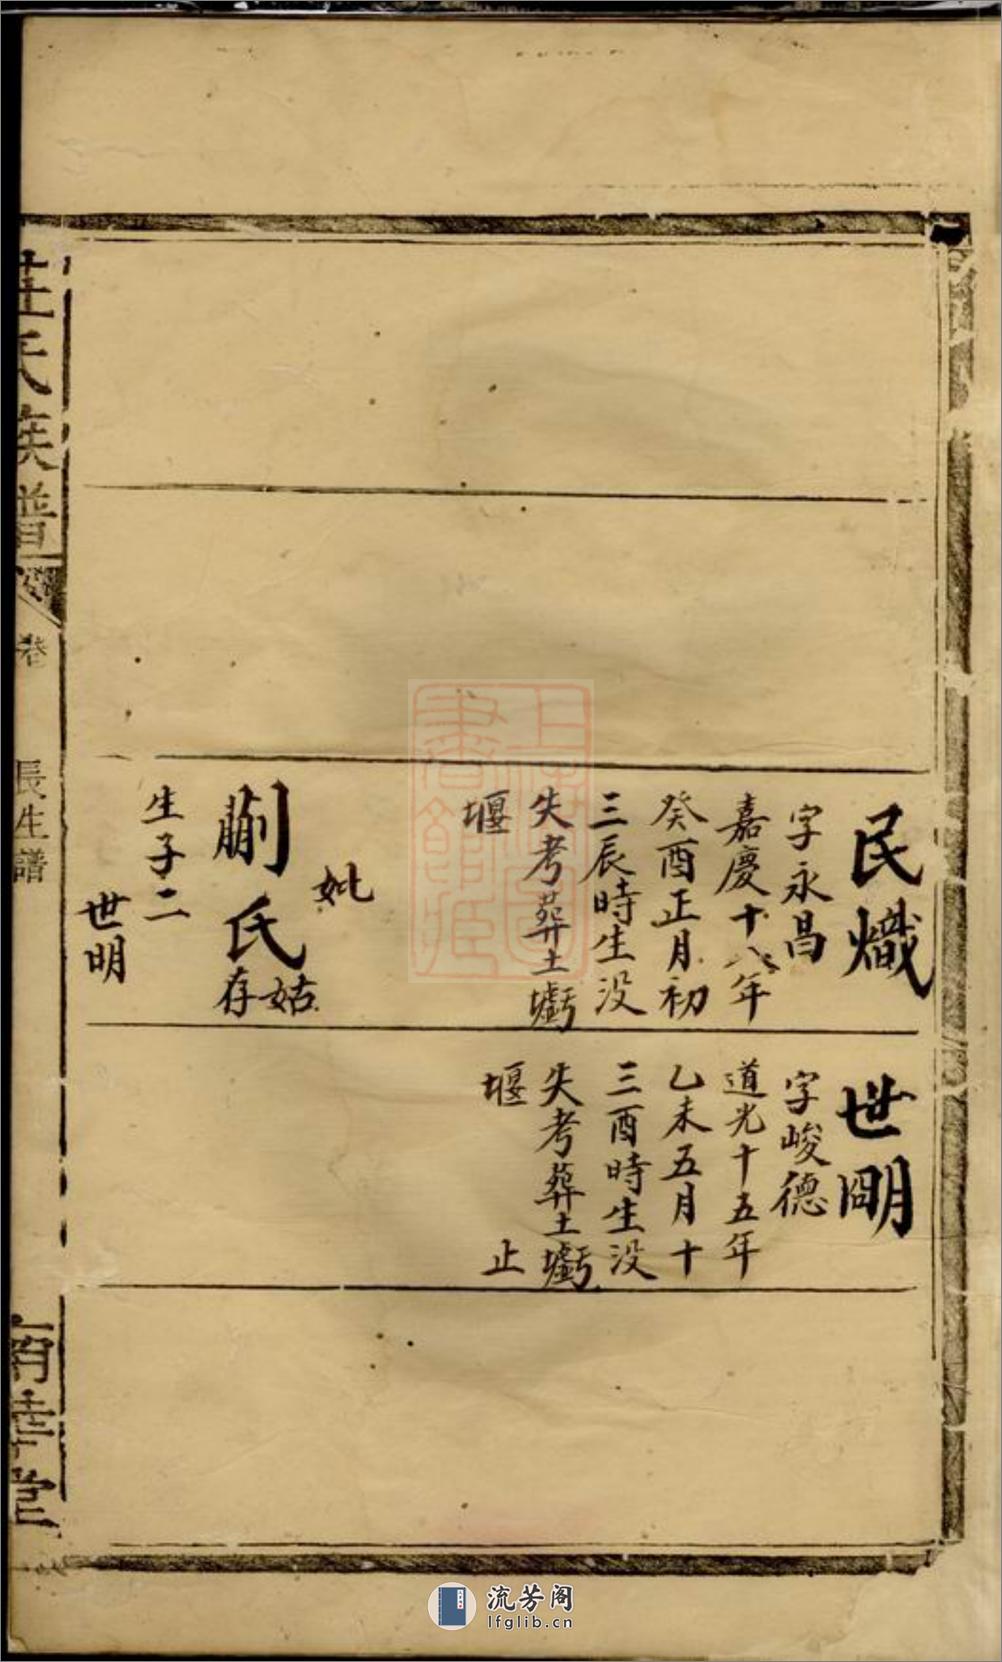 民熾
字永昌
嘉慶十八年
癸酉正月初
三辰時生没
失考葬土墈
堰
妣
蒯氏
姑
存
生子二
世明
世明
字峻德
道光十五年
乙未五月十
三酉時生没
失考葬土墈
堰 止
莊氏族譜
卷
長生譜
南華堂
上海圖
書館藏
流芳阁
lfglib.cn